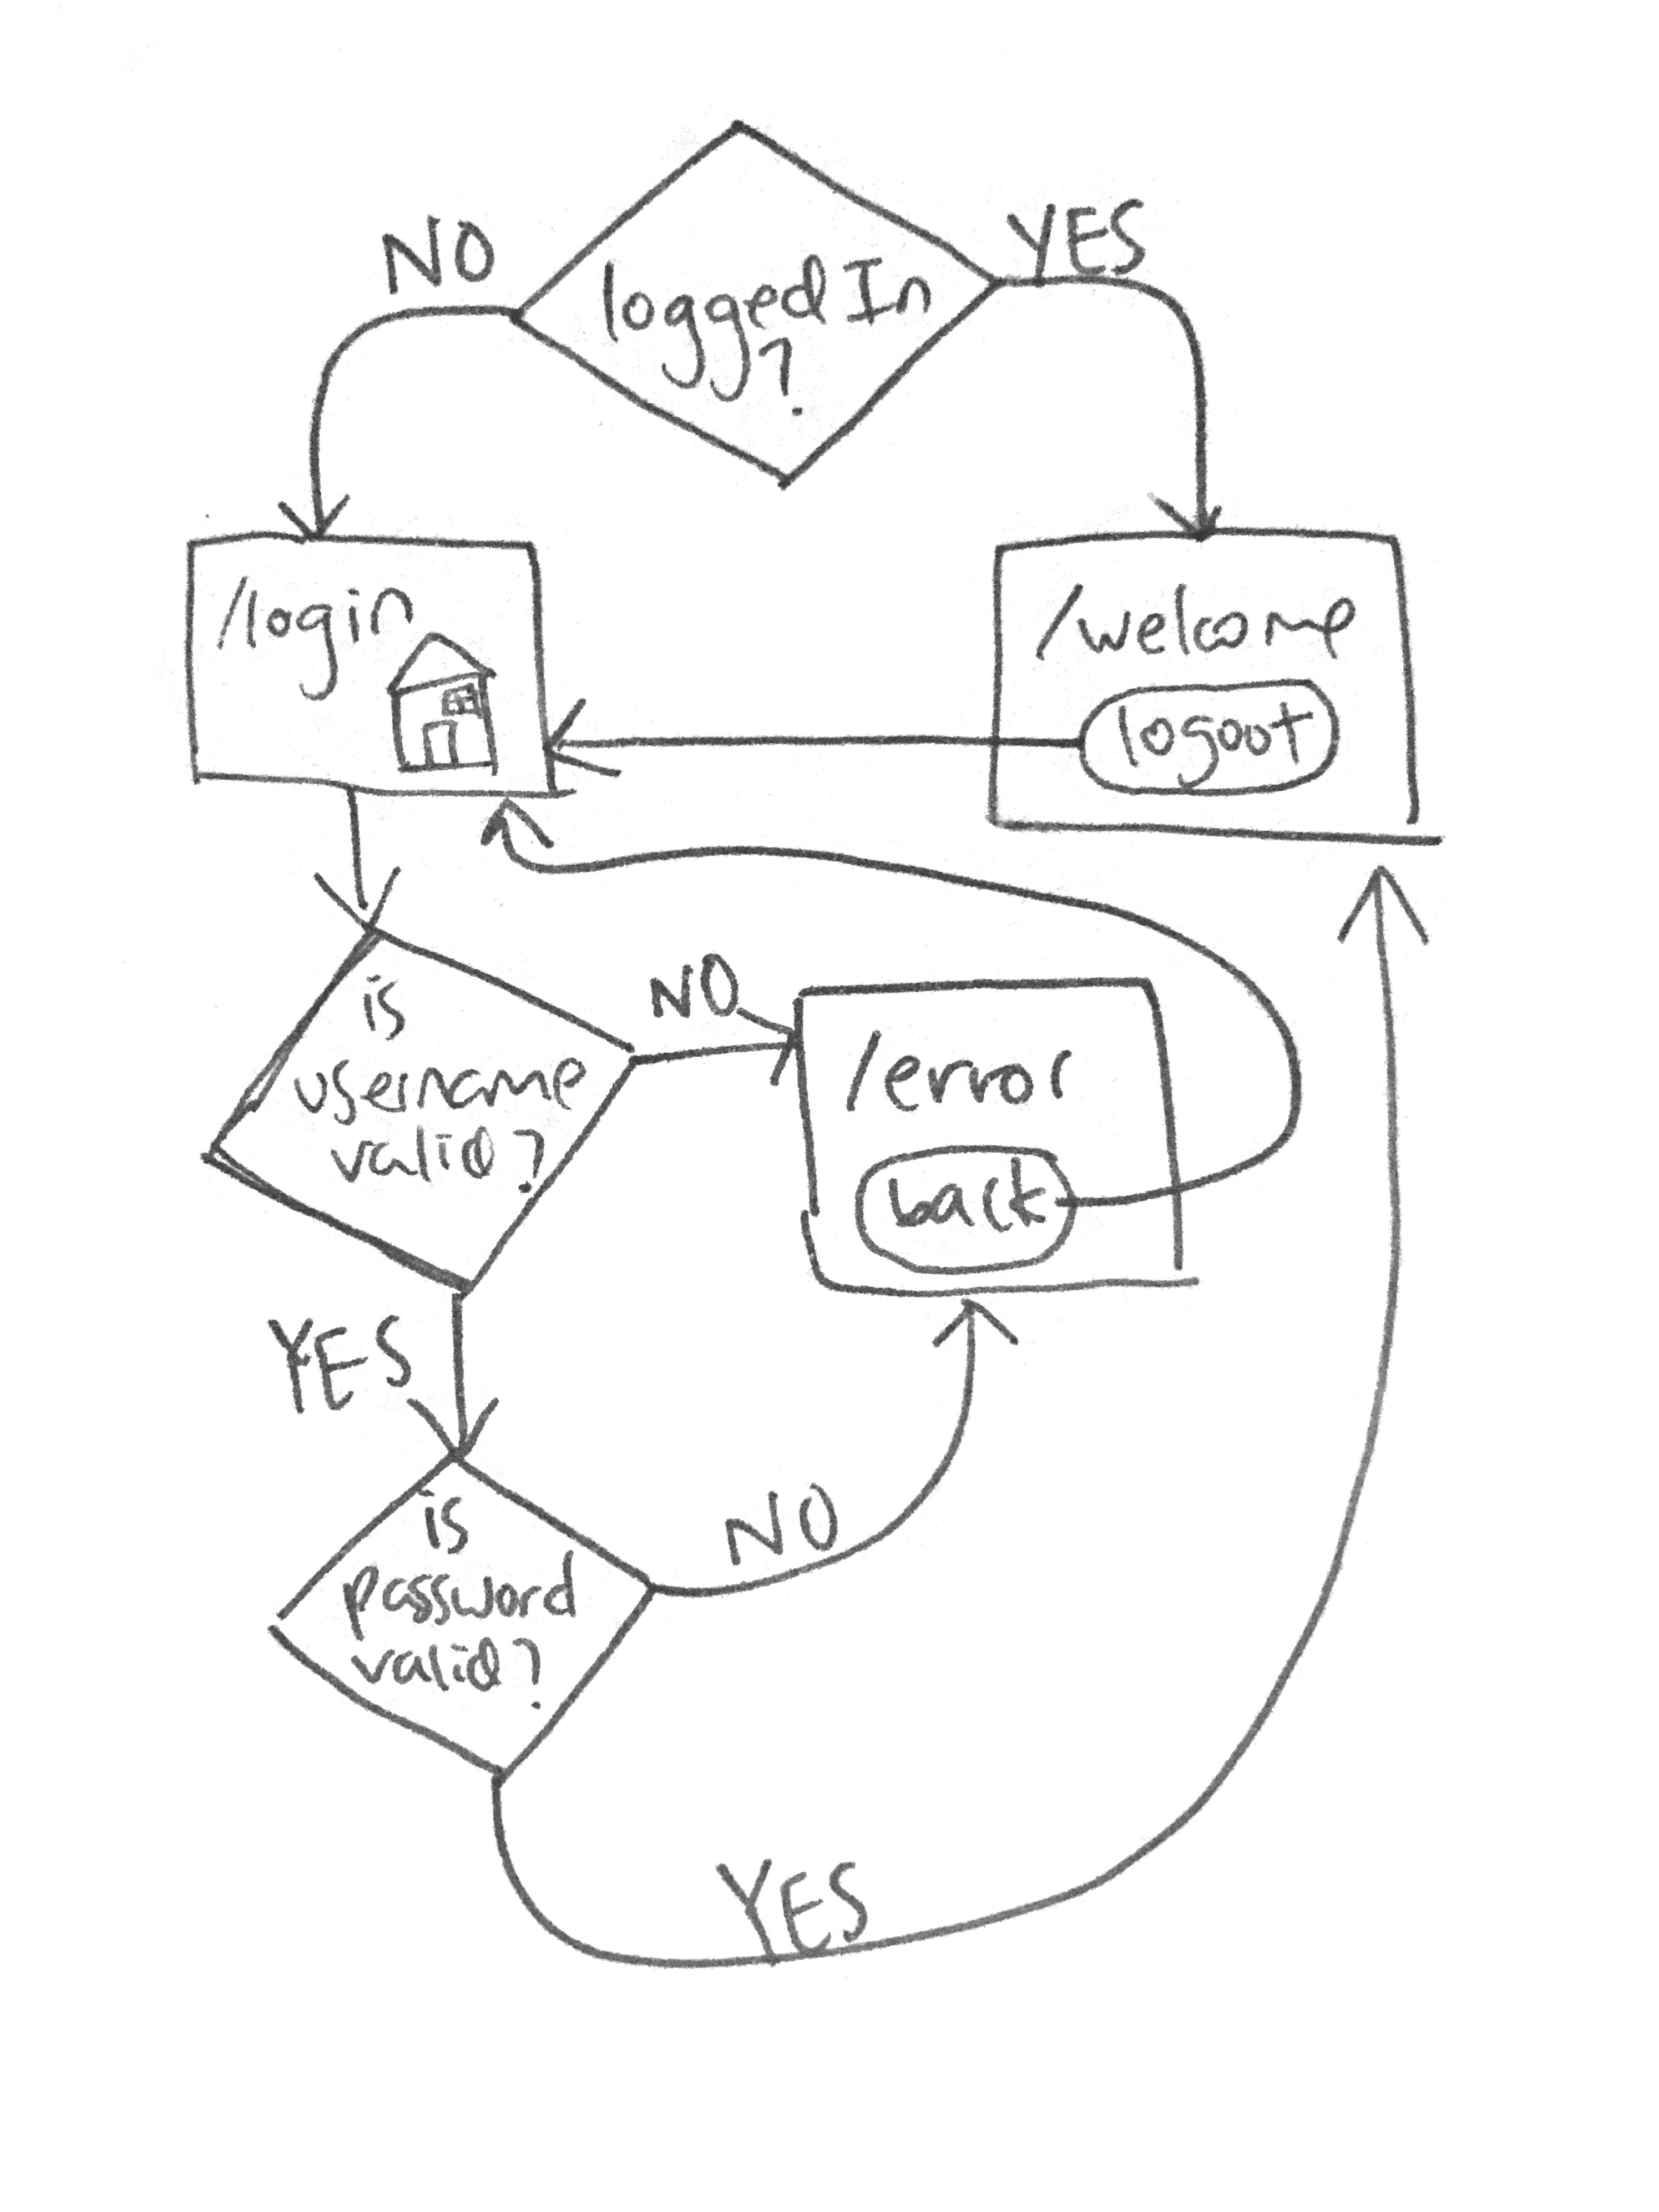 NO
YES
loggedIn
?
/login
/welcome
logout
is
username
valid?
NO
/error
back
YES
is
password
valid?
NO
YES